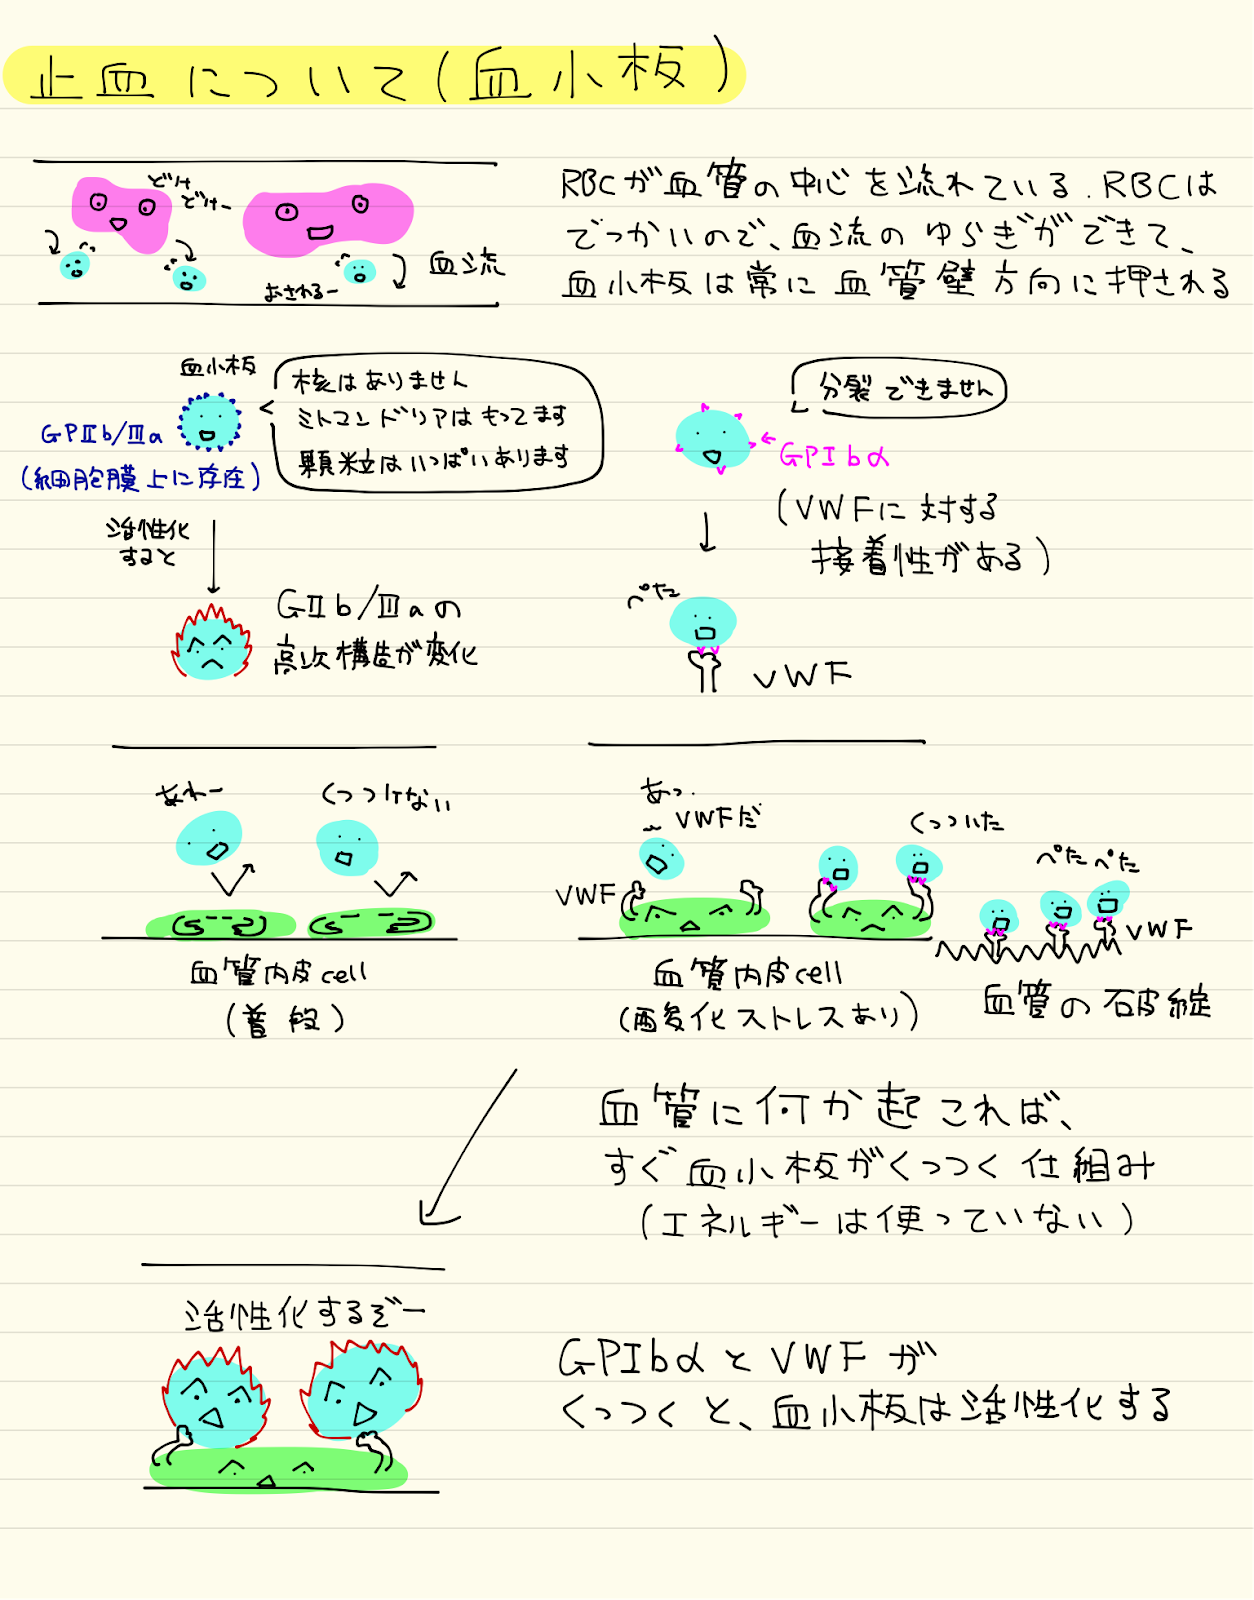 止血について(血小板)
どけ
どけー
おされるー
血流
RBCが血管の中心を流れている.RBCは
でっかいので、血流のゆらぎができて、
血小板は常に血管壁方向に押される
血小板
核はありません
ミトコンドリアはもってます
顆粒はいっぱいあります
GPⅡb/Ⅲa
(細胞膜上に存在)
分裂できません
GPIbα
(VWFに対する
接着性がある)
活性化
すると
GⅡb/Ⅲaの
高次構造が変化
ぺた
VWF
あれー
くっつけない
血管内皮cell
(普段)
あっ.
VWFだ
VWF
くっついた
血管内皮cell
(酸化ストレスあり)
ぺたぺた
VWF
血管の破綻
血管に何か起これば、
すぐ血小板がくっつく仕組み
(エネルギーは使っていない)
活性化するぞー
GPIbαとVWFが
くっつくと、血小板は活性化する